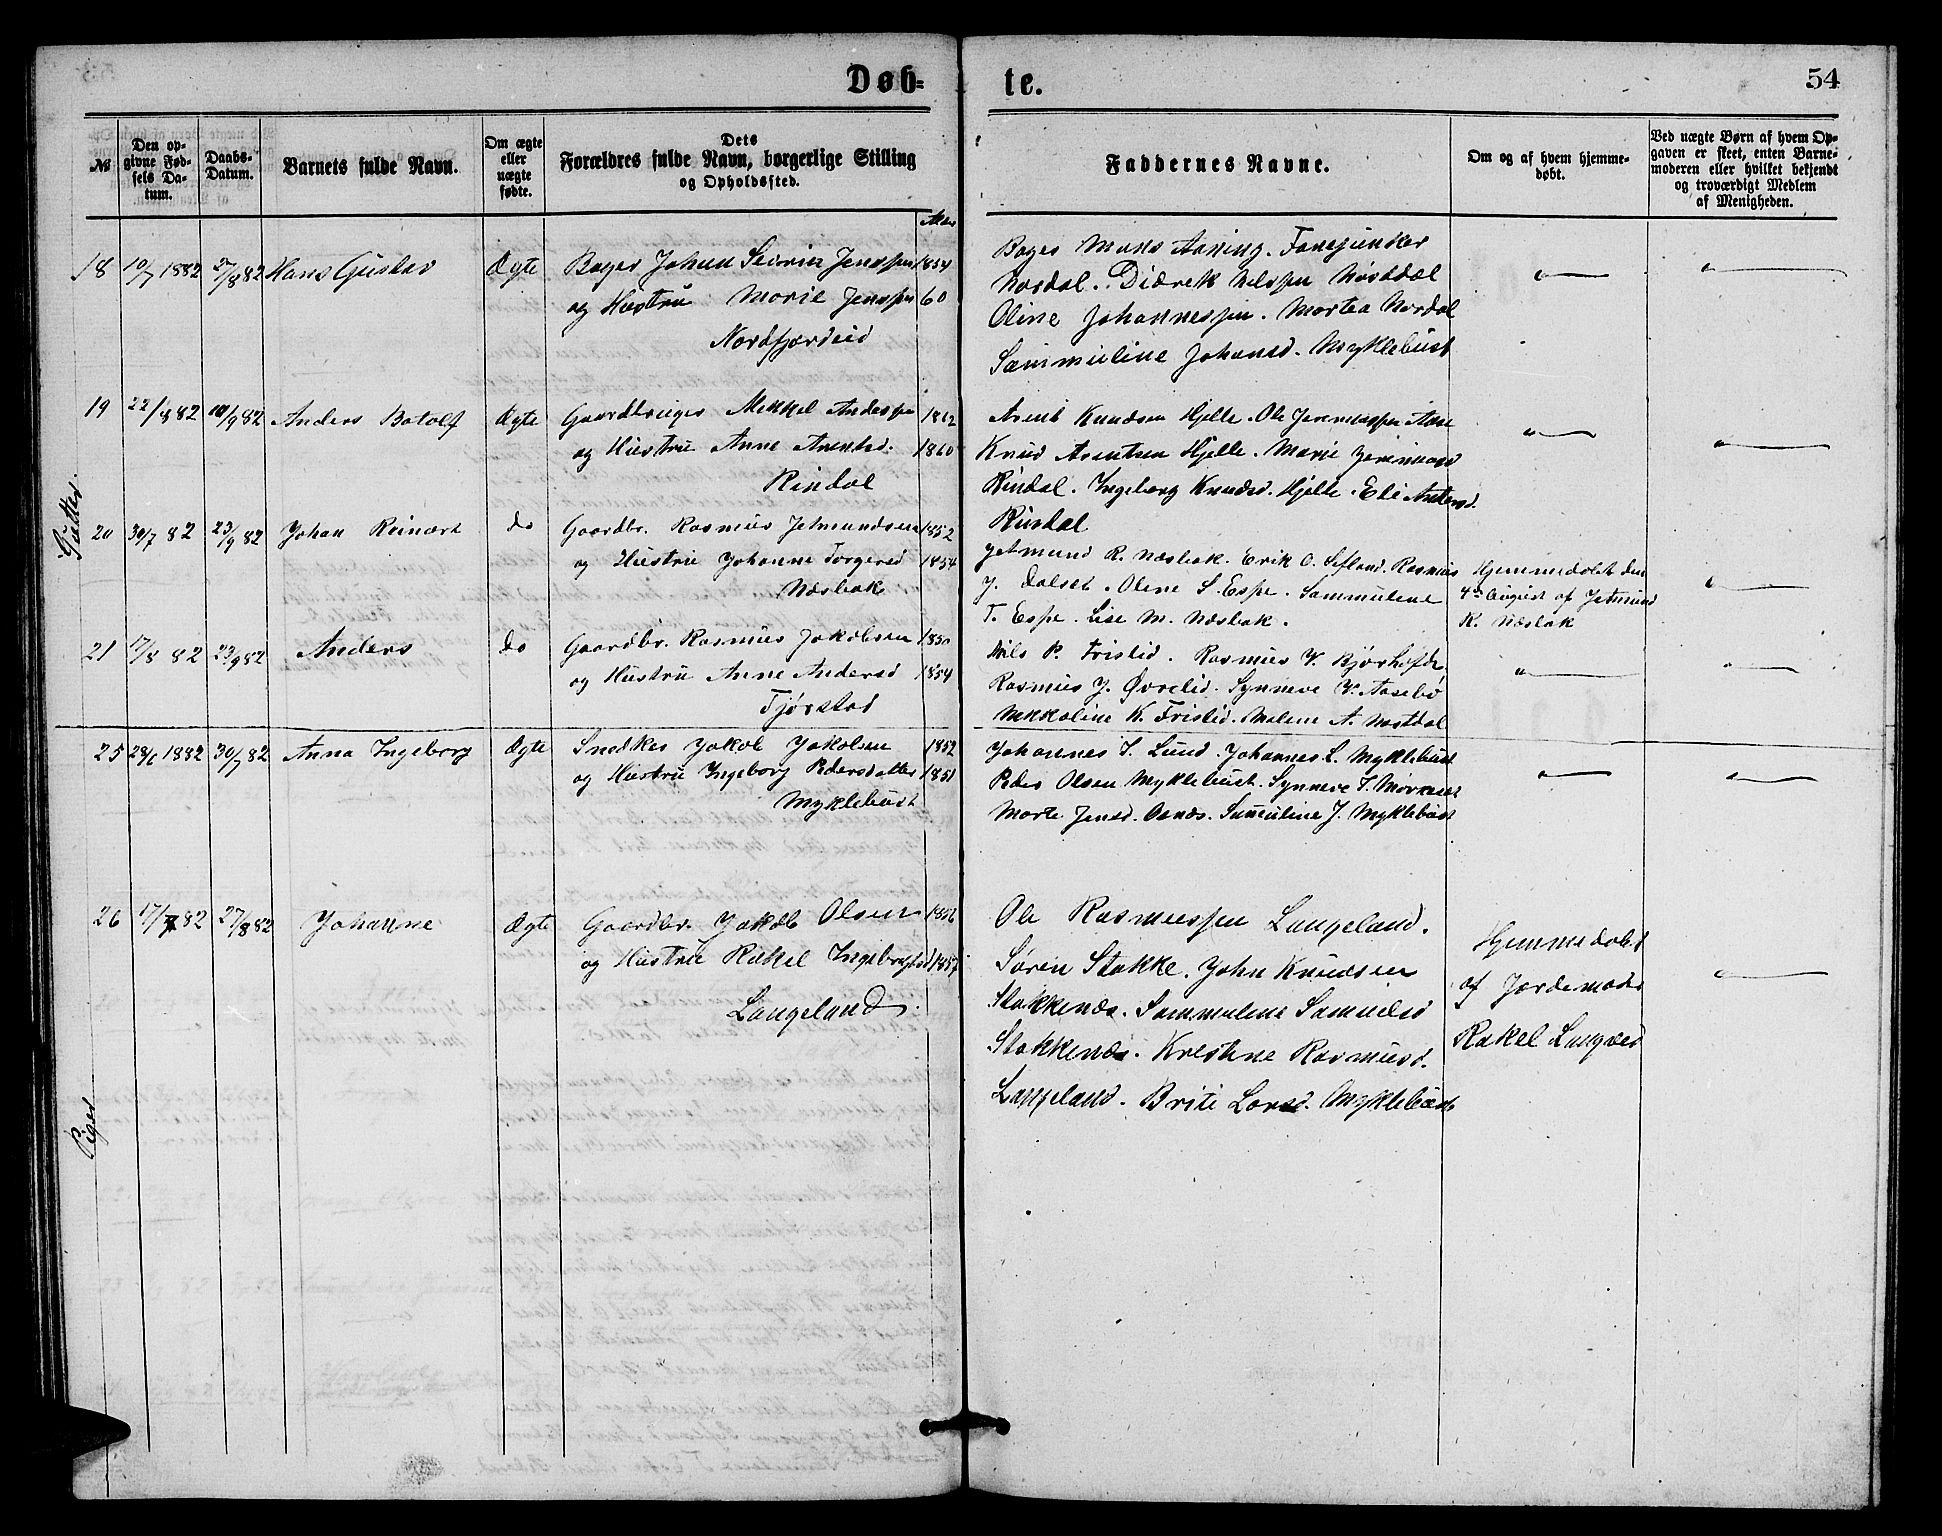 Døb-
te.
54
№
Den op-
givne Fød-
sels Da-
tum.
Daabs-
Datum.
Barnets fulde Navn.
Om ægte
eller
uægte
fødte.
Dets
Forældres fulde Navn, borgerlige Stilling
og Opholdssted.
Faddernes Navne.
Om og af hvem hjemme-
døbt.
Ved uægte Børn af hvem Op-
gaven er skeet, enten Barne-
moderen eller hvilket bekjendt
og troværdigt Medlem
af Menigheden.
Alder
Gutter.
18 10/7 1882 27/8 82 Hans Gustav Ægte Bager Johan Severin Jenssen 1854
og Hustru Marie Jenssen 60
Nordfjordeid
Bager Mons Aaning. Fanejunker
Nordal. Didrek Nilssen Nøstdal
Oline Johannessen. Martea Nordal
Sammuline Johansd. Myklebust
19 22/8 82 10/9 82 Anders Botolf Ægte Gaardbruger Mikkel Anderssen 1862
og Hustru Anne Arentsd. 1860
Rindal
Arent Knudsen Hjelle. Ole Jeremiassen Aase
Knud Arentsen Hjelle. Marie Jeremiasd
Rindal. Ingeborg Knudsd. Hjelle. Eli Andersd.
Rindal
20 30/7 82 23/9 82 Johan Reinart do Gaardbr. Rasmus Jetmundsen 1852
og Hustru Johanne Torgersd 1854
Næsbak
Jetmund R. Næsbak. Erik O. Sefland. Rasmus
J. Dalset. Oline S. Espe. Sammuline
T. Espe. Lise M. Næsbak.
Hjemmedøbt den
4de August af Jetmund
R. Næsbak
21 17/8 82 23/9 82 Anders do Gaardbr. Rasmus Jakobsen 1850
og Hustru Anne Andersd 1854
Fjørstad
Nils P. Fristid. Rasmus V. Bjørhofde
Rasmus J. Øvrelid. Synneve V. Aasebø
Mekkaline K. Fristid. Malene A. Nøstdal
Piger
25 28/6 1882 30/7 82 Anna Ingeborg Ægte Snedker Jakob Jakobsen 1852
og Hustru Ingeborg Pedersdatter 1851
Myklebust
Johannes T. Lund. Johannes L. Myklebust
Peder Olsen Myklebust. Synneve T. Mørkeset
Marte Jensd. Osnæs. Sammuline J. Myklebust
26 17/7 82 27/8 82 Johanne Ægte Gaardbr. Jakob Olsen 1856
og Hustru Rakel Ingebrigtsd 1857
Langeland.
Ole Rasmussen Langeland.
Søren Stokke. John Knudsen
Stokkenæs. Sammuline Samuelsd
Stokkenæs. Kristine Rasmusd.
Langeland. Brite Larsd. Myklebust
Hjemmedøbt
af Jordemoder
Rakel Langved